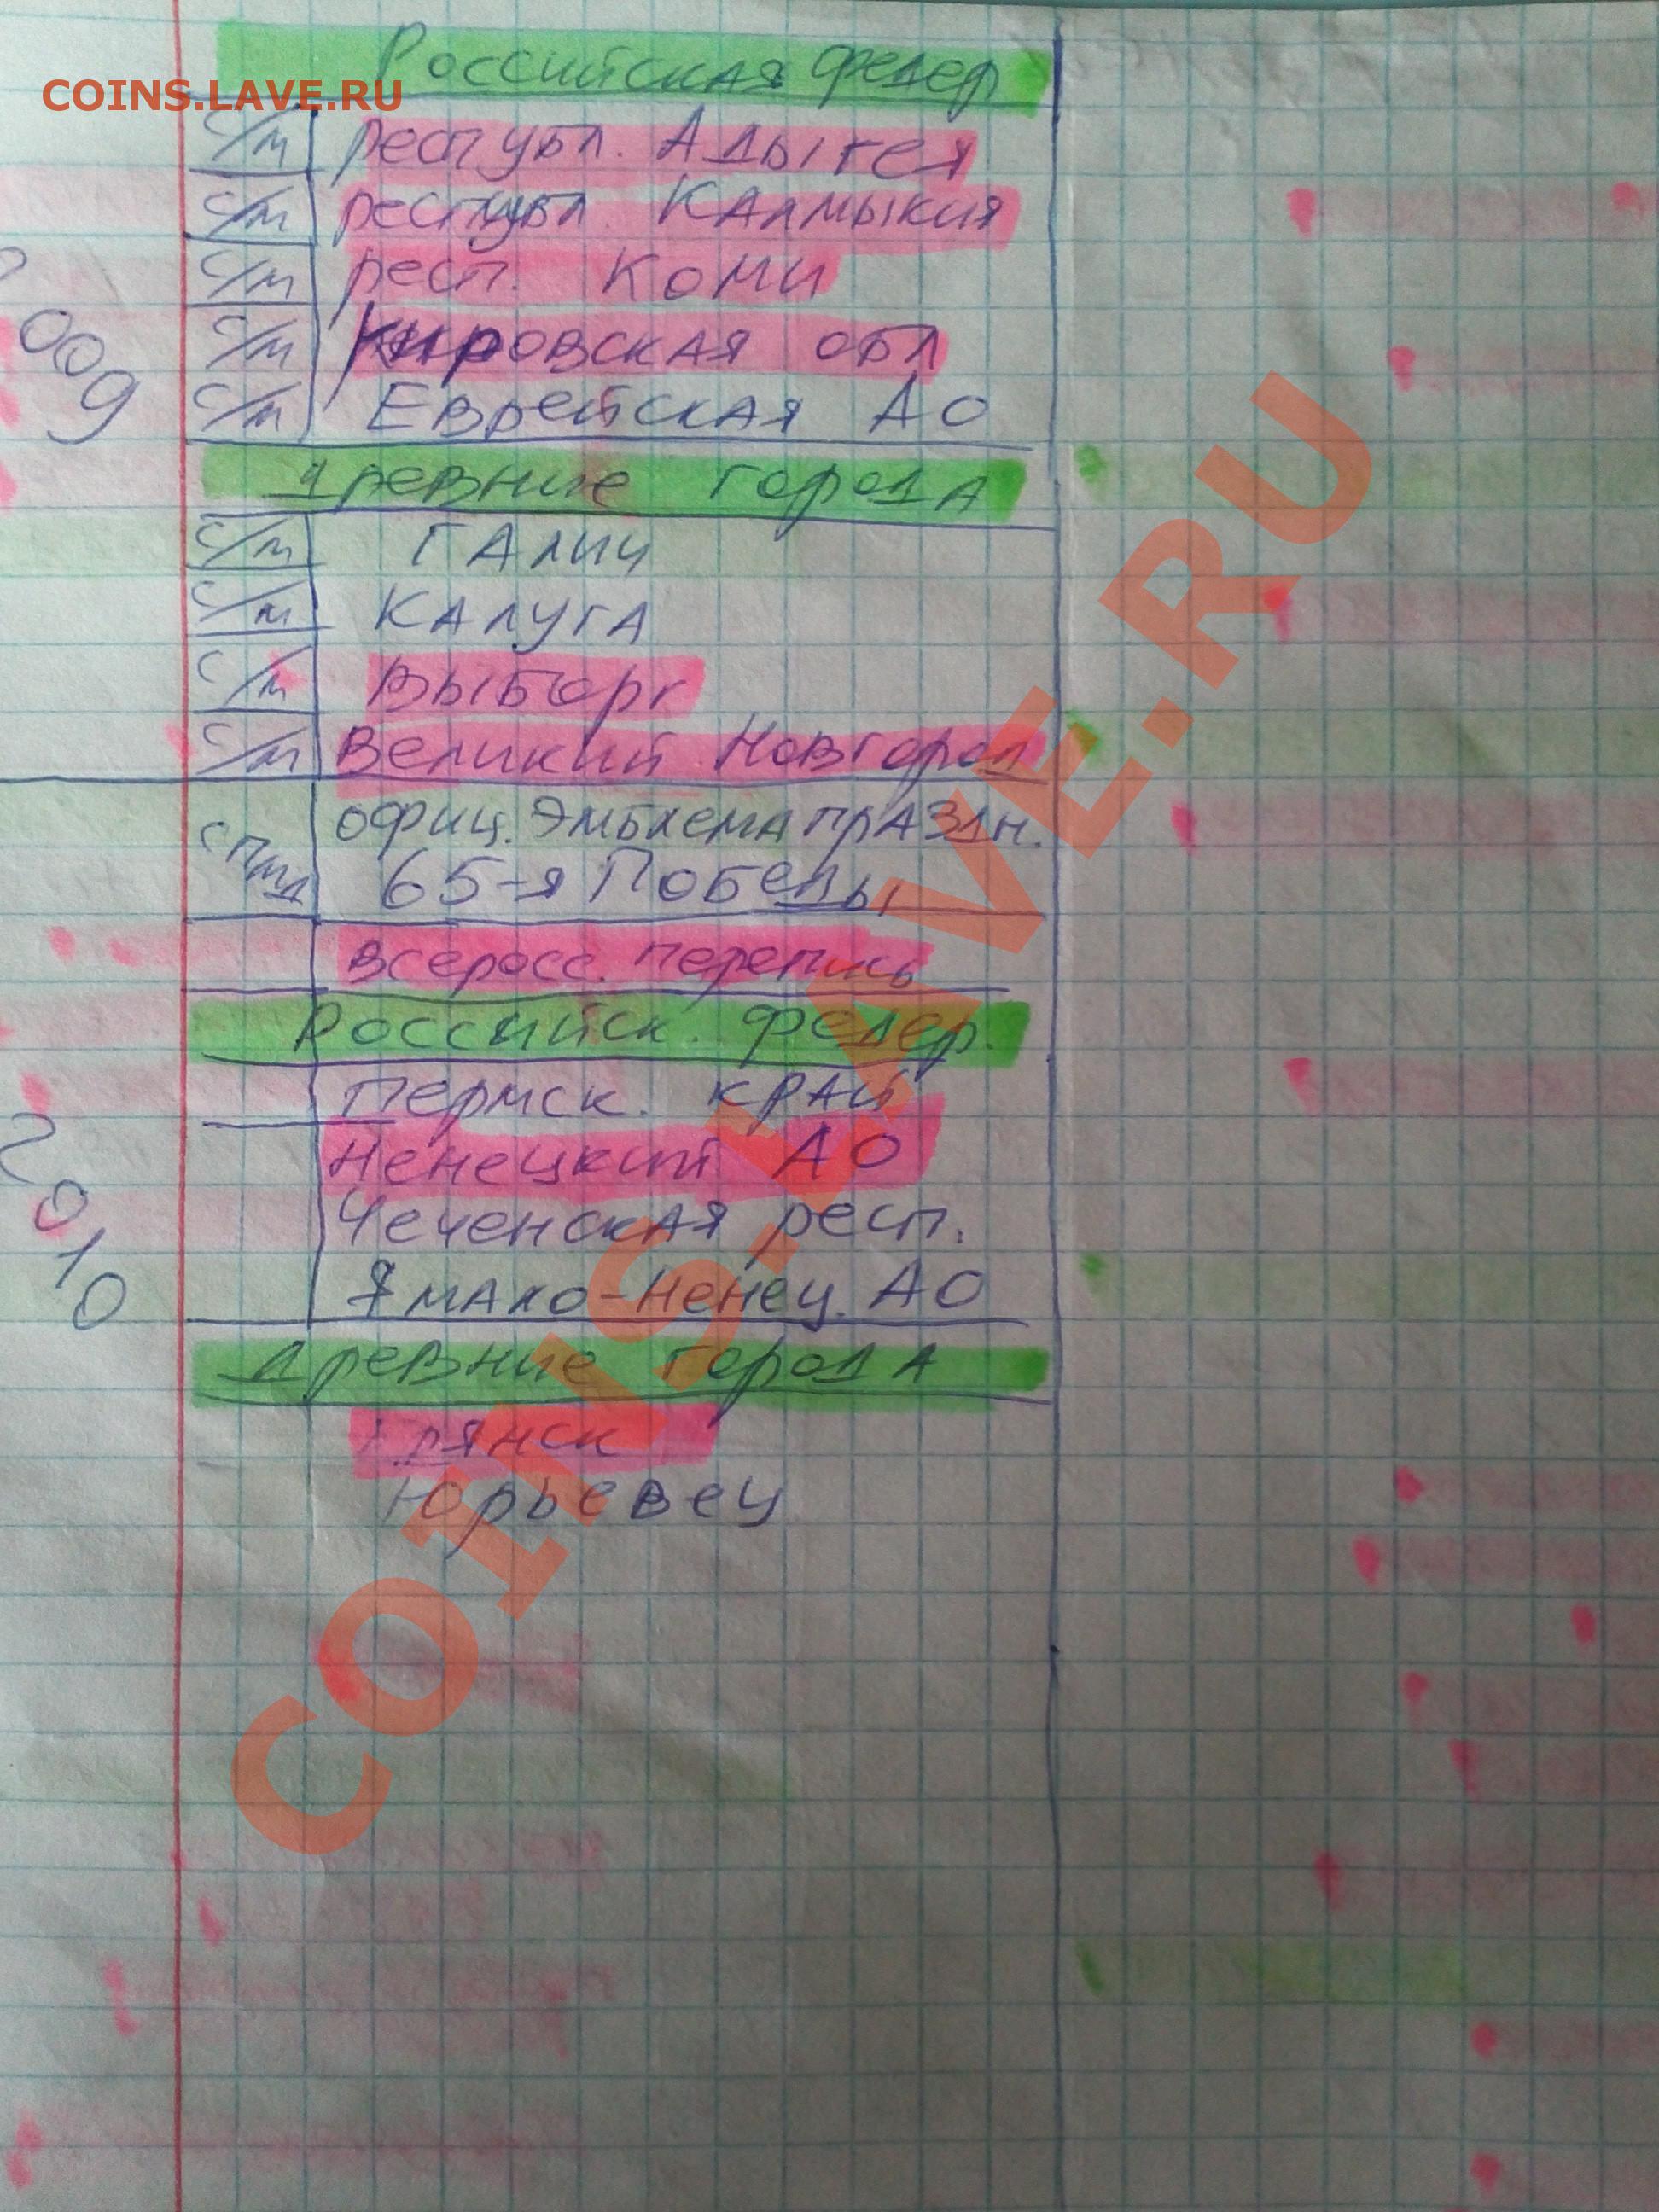 COINS.LAVE.RU
Российская федер
с/м республ. Адыгея
с/м республ. Калмыкия
с/м респ. Коми
с/м Кировская обл
с/м Еврейская АО
2009
Древние города
с/м Галич
с/м Калуга
с/м Выборг
с/м Великий Новгород
спмд офиц. Эмблема праздн.
65-я Победы
Всеросс. перепись
Российск. федер.
Пермск. край
Ненецкий АО
Чеченская респ.
Ямало-Ненец. АО
2010
Древние города
Брянск
Юрьевец
COINS.LAVE.RU